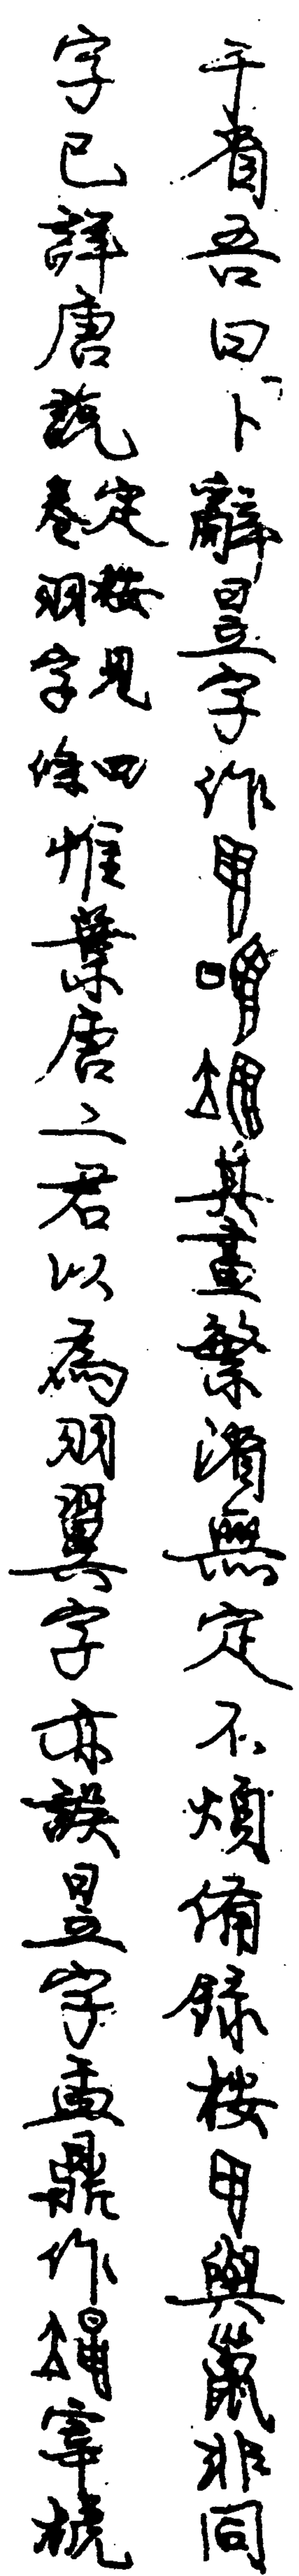 于省吾曰「卜辭昱字作其畫繁渻無定不煩備錄按與巤非同
字已詳唐說定按見四卷羽字條惟葉唐二君以為羽翼字亦誤昱字盂鼎作宰椃